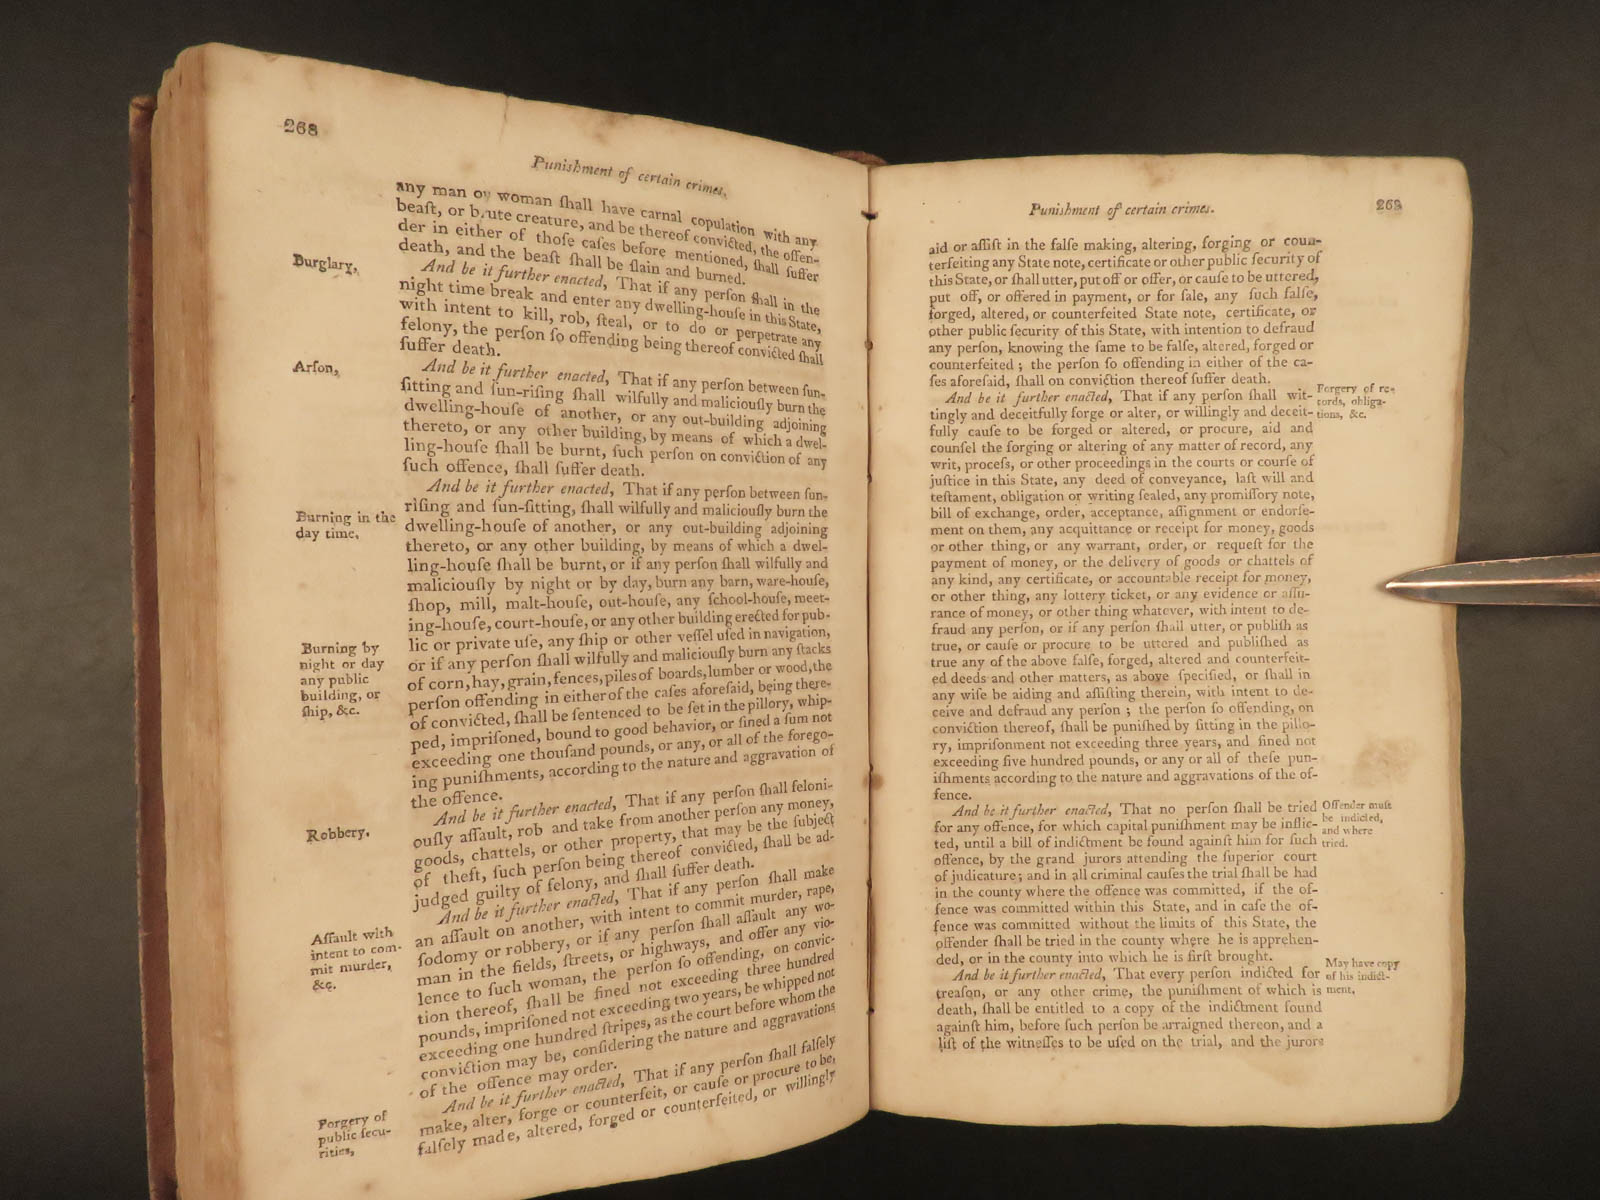 268
Punishment of certain crimes.
any man or woman ſhall have carnal copulation with any
beaſt, or brute creature, and be thereof convicted, the offen-
der in either of thoſe caſes before mentioned, ſhall ſuffer
death, and the beaſt ſhall be ſlain and burned.
Burglary,
And be it further enacted, That if any perſon ſhall in the
night time break and enter any dwelling-houſe in this State,
with intent to kill, rob, ſteal, or to do or perpetrate any
felony, the perſon ſo offending being thereof convicted ſhall
ſuffer death.
Arſon,
And be it further enacted, That if any perſon between ſun-
ſitting and ſun-riſing ſhall wilfully and maliciouſly burn the
dwelling-houſe of another, or any out-building adjoining
thereto, or any other building, by means of which a dwel-
ling-houſe ſhall be burnt, ſuch perſon on conviction of any
ſuch offence, ſhall ſuffer death.
Burning in the
day time,
And be it further enacted, That if any perſon between ſun-
riſing and ſun-ſitting, ſhall wilfully and maliciouſly burn the
dwelling-houſe of another, or any out-building adjoining
thereto, or any other building, by means of which a dwel-
ling-houſe ſhall be burnt, or if any perſon ſhall wilfully and
maliciouſly by night or by day, burn any barn, ware-houſe,
ſhop, mill, malt-houſe, out-houſe, any ſchool-houſe, meet-
ing-houſe, court-houſe, or any other building erected for pub-
lic or private uſe, any ſhip or other veſſel uſed in navigation,
or if any perſon ſhall wilfully and maliciouſly burn any ſtacks
of corn, hay, grain, fences, piles of boards, lumber or wood, the
perſon offending in either of the caſes aforeſaid, being there-
of convicted, ſhall be ſentenced to be ſet in the pillory, whip-
ped, impriſoned, bound to good behavior, or fined a ſum not
exceeding one thouſand pounds, or any, or all of the forego-
ing puniſhments, according to the nature and aggravation of
the offence.
Burning by
night or day
any public
building, or
ſhip, &c.
Robbery.
And be it further enacted, That if any perſon ſhall feloni-
ouſly aſſault, rob and take from another perſon any money,
goods, chattels, or other property, that may be the ſubject
of theft, ſuch perſon being thereof convicted, ſhall be ad-
judged guilty of felony, and ſhall ſuffer death.
Aſſault with
intent to com-
mit murder,
&c.
And be it further enacted, That if any perſon ſhall make
an aſſault on another, with intent to commit murder, rape,
ſodomy or robbery, or if any perſon ſhall aſſault any wo-
man in the fields, ſtreets, or highways, and offer any vio-
lence to ſuch woman, the perſon ſo offending, on convic-
tion thereof, ſhall be fined not exceeding three hundred
pounds, impriſoned not exceeding two years, be whipped not
exceeding one hundred ſtripes, as the court before whom the
conviction may be, conſidering the nature and aggravations
of the offence may order.
Forgery of
public ſecu-
rities,
And be it further enacted, That if any perſon ſhall falſely
make, alter, forge or counterfeit, or cauſe or procure to be,
falſely made, altered, forged or counterfeited, or willingly
Punishment of certain crimes.
269
aid or aſſiſt in the falſe making, altering, forging or coun-
terfeiting any State note, certificate or other public ſecurity of
this State, or ſhall utter, put off or offer, or cauſe to be uttered,
put off, or offered in payment, or for ſale, any ſuch falſe,
forged, altered, or counterfeited State note, certificate, or
other public ſecurity of this State, with intention to defraud
any perſon, knowing the ſame to be falſe, altered, forged or
counterfeited ; the perſon ſo offending in either of the ca-
ſes aforeſaid, ſhall on conviction thereof ſuffer death.
And be it further enacted, That if any perſon ſhall wit-
tingly and deceitfully forge or alter, or willingly and deceit-
fully cauſe to be forged or altered, or procure, aid and
counſel the forging or altering of any matter of record, any
writ, proceſs, or other proceedings in the courts or courſe of
juſtice in this State, any deed of conveyance, laſt will and
teſtament, obligation or writing ſealed, any promiſſory note,
bill of exchange, order, acceptance, aſſignment or endorſe-
ment on them, any acquittance or receipt for money, goods
or other thing, or any warrant, order, or requeſt for the
payment of money, or the delivery of goods or chattels of
any kind, any certificate, or accountable receipt for money,
or other thing, any lottery ticket, or any evidence or aſſu-
rance of money, or other thing whatever, with intent to de-
fraud any perſon, or if any perſon ſhall utter, or publiſh as
true, or cauſe or procure to be uttered and publiſhed as
true any of the above falſe, forged, altered and counterfeit-
ed deeds and other matters, as above ſpecified, or ſhall in
any wiſe be aiding and aſſiſting therein, with intent to de-
ceive and defraud any perſon ; the perſon ſo offending, on
conviction thereof, ſhall be puniſhed by ſitting in the pillo-
ry, impriſonment not exceeding three years, and fined not
exceeding five hundred pounds, or any or all of theſe pun-
iſhments according to the nature and aggravations of the of-
fence.
Forgery of re-
cords, obliga-
tions, &c.
And be it further enacted, That no perſon ſhall be tried
for any offence, for which capital puniſhment may be inflic-
ted, until a bill of indictment be found againſt him for ſuch
offence, by the grand jurors attending the ſuperior court
of judicature; and in all criminal cauſes the trial ſhall be had
in the county where the offence was committed, if the of-
fence was committed within this State, and in caſe the of-
fence was committed without the limits of this State, the
offender ſhall be tried in the county where he is apprehen-
ded, or in the county into which he is firſt brought.
Offender muſt
be indicted,
and where
tried.
And be it further enacted, That every perſon indicted for
treaſon, or any other crime, the puniſhment of which is
death, ſhall be entitled to a copy of the indictment found
againſt him, before ſuch perſon be arraigned thereon, and a
liſt of the witneſſes to be uſed on the trial, and the jurors
May have copy
of his indict-
ment.